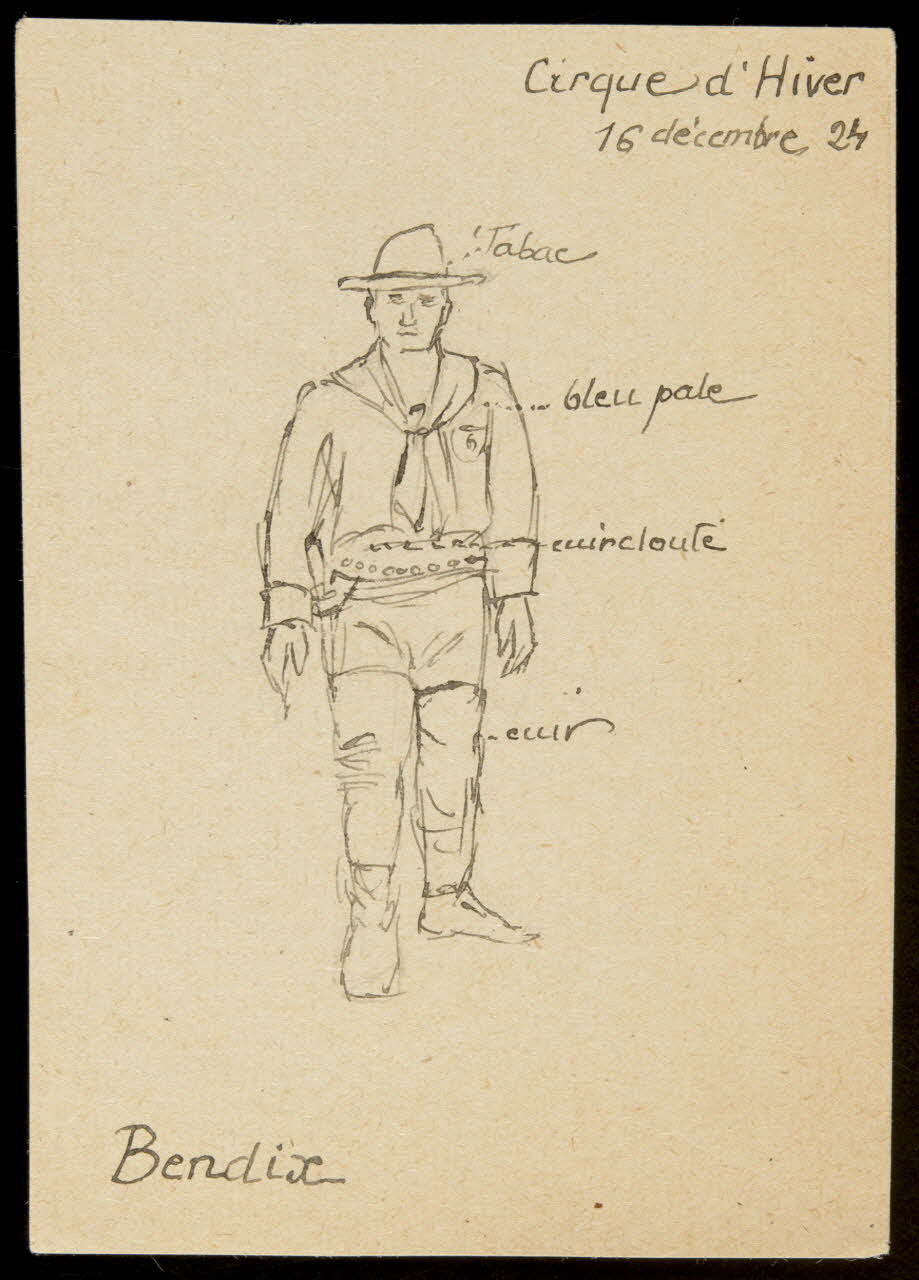 Cirque d'Hiver
16 décembre 24
Tabac
bleu pale
6
cuir clouté
cuir
Bendix